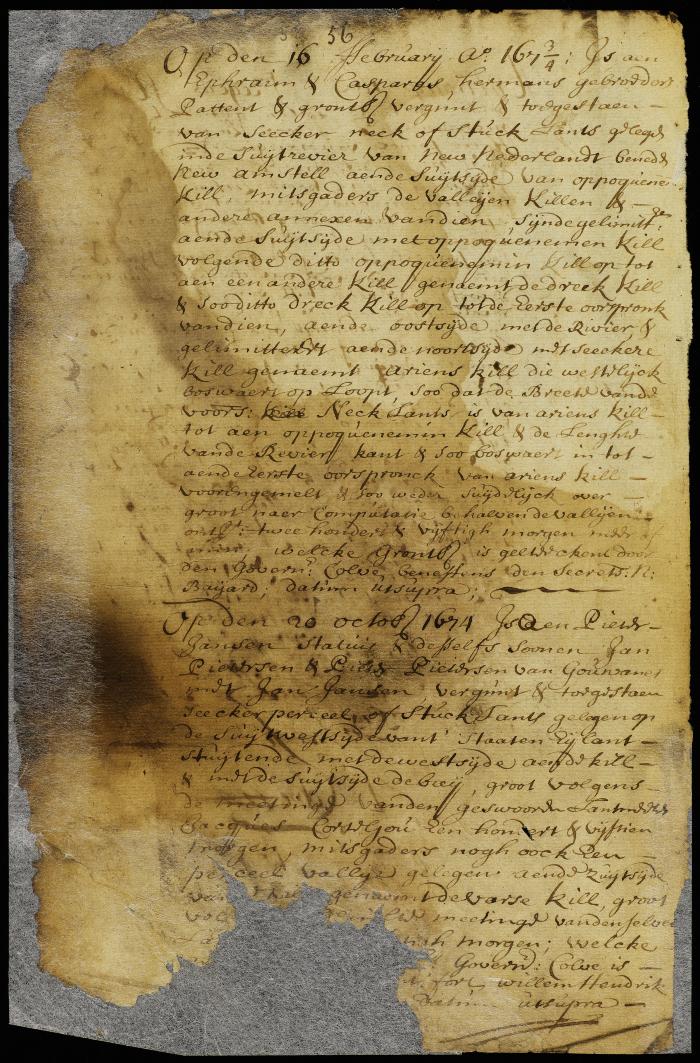 56
Op den 16 February Aº. 167¾: Is aen
Ephraim & Casparus hermans gebroeders
Pattent & grontb: vergunt & toegestaen —
van Seecker neck of Stuck Lants gelegen
inde Suÿtrevier van New Nederlandt beneden
New amstell aende Suÿtsÿde van oppoquene-
Kill, mitsgaders de valleÿen Killen & —
andere annexen vandien, sÿnde gelimitt:
aende Suÿtsÿde met oppoquenemen Kill
volgende ditto oppoquenemin Kill op tot
aen een andere Kill genaemt de dreck Kill
& soo ditto dreck Kill op totde Eerste oorspronk
vandien, aende oostsÿde met de Rivier &
gelimitteert aende noortsÿde met seeckere
Kill genaemt Ariens Kill die westelÿck
boswaert op Loopt, soo dat de Breete vande
voors: Neck Lants is van ariens Kill —
tot aen oppoquenemin Kill & de Lenghte
vande Revier kant & soo boswaert in tot —
aende Eerste oorspronck van ariens Kill —
voorengemelt & soo weder suÿdelÿck over —
groot naer Computatie behalven de vallÿen —
twee hondert & vÿftigh morgen meer of
min, welcke Grontb: is geteeckent door
den Govern.r Colve benestens den Secrets: N:
Baÿard; datum utsupra; —
Op den 20 octob: 1674 Is aen Pieter —
Jansen & desselfs Soonen Jan
Pietersen & Pieter Pietersen van Gouwanes
met Jan Jansen, vergunt & toegestaen
seecker perceel of Stuck Lants gelegen op
de Suÿtwestsÿde vant Staaten Eÿlant —
Stuÿtende met de westsÿde aende kill —
& met de Suÿtsÿde de baeÿ, groot volgens —
de meetinge vanden geswooren Lantmeeter
Jacques Corteljou Een hondert & vÿftien
morgen, mitsgaders nogh oock Een —
perceel vallÿe gelegen aende Zuÿtsÿde
van genaemt de varse Kill, groot
meetinge vanden selven
morgen; welcke
Govern.r: Colve is —
fort willem Hendrik
Datum utsupra —